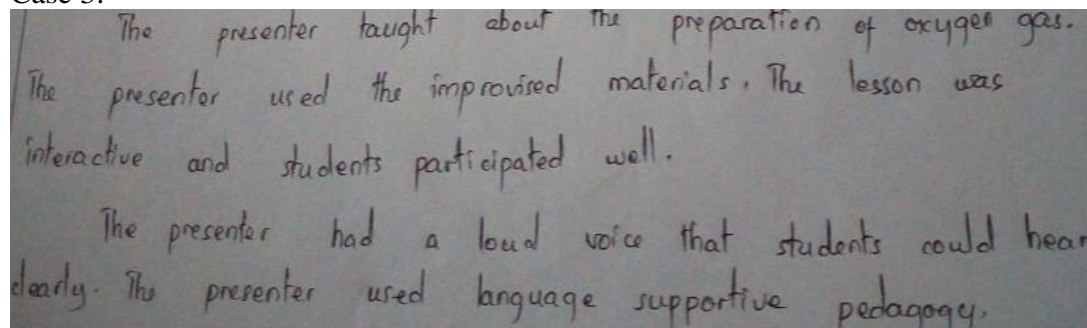 Case 3:
The presenter taught about the preparation of oxygen gas.
The presenter used the improvised materials. The lesson was
interactive and students participated well.
The presenter had a loud voice that students could hear
clearly. The presenter used language supportive pedagogy.